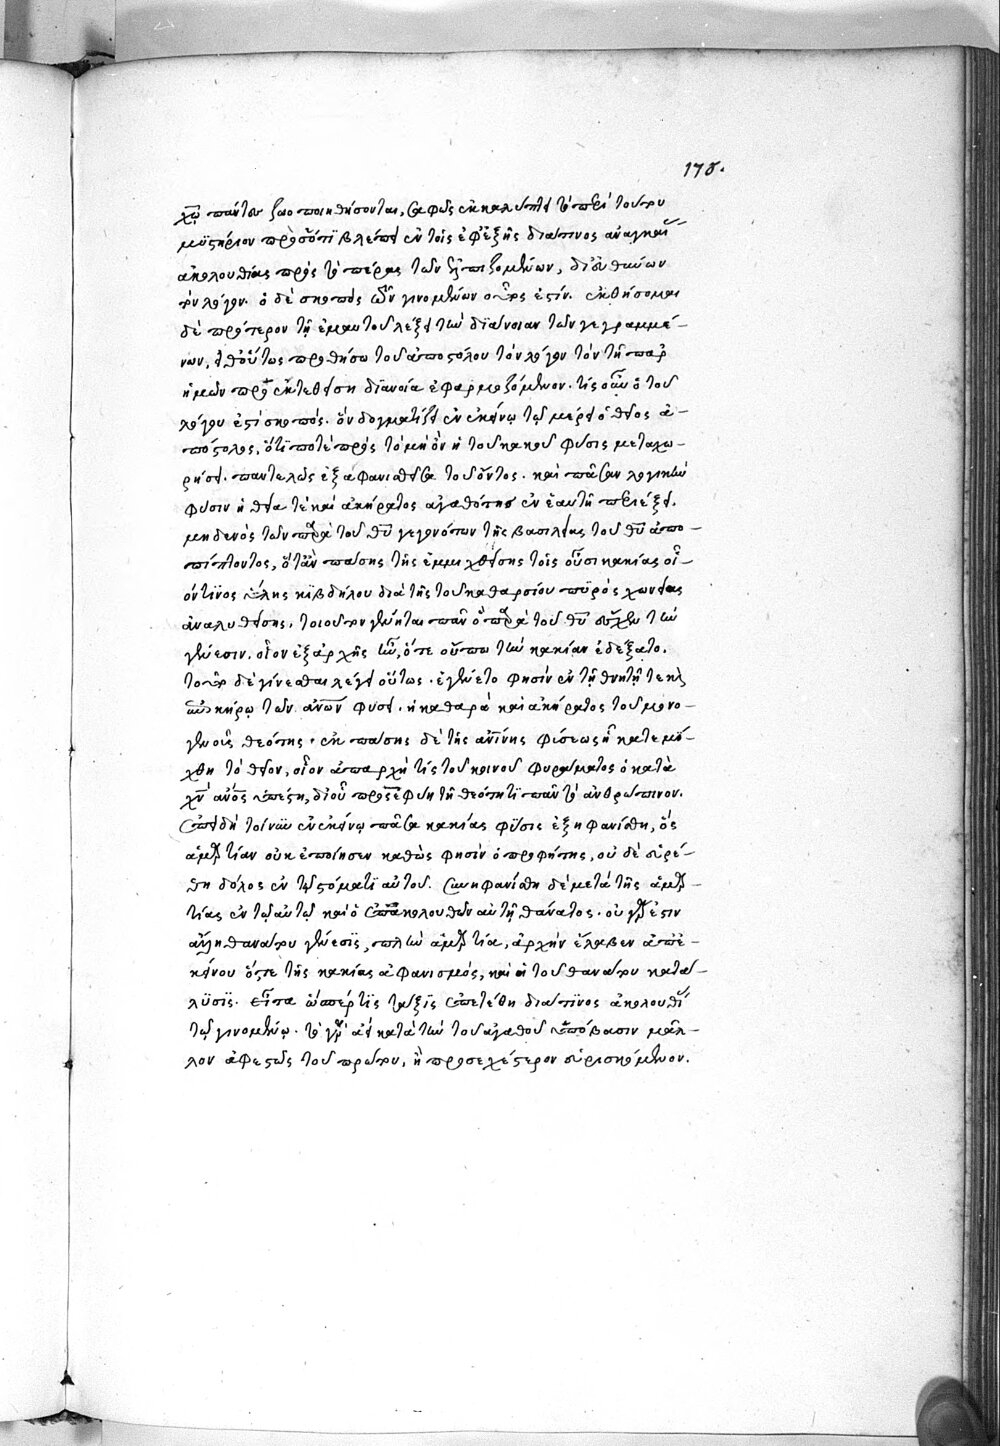 178.
χῶ πάντες ζωοποιηθήσονται, σαφῶς ἐκκαλύπτει τὸ περὶ τούτου
μυστήριον πρὸς ὅτι βλέπει ἐν τοῖς ἐφεξῆς διά τινος ἀναγκαί
ἀκολουθίας πρὸς τὸ πέρας τῶν ἐλπιζομένων, διευθύνων
τὸν λόγον. ὁ δὲ σκοπὸς τῶν γινομένων οὗτός ἐστιν. ἐκθήσομαι
δὲ πρότερον τῇ ἐμαυτοῦ λέξει τὴν διάνοιαν τῶν γεγραμμέ-
νων, εἶθ' οὕτως προσθήσω τοῦ ἀποστόλου τὸν λόγον τὸν τῇ παρ
ἡμῶν προεκτεθείσῃ διανοία ἐφαρμοζόμενον. τίς οὖν ὁ τοῦ
λόγου ἐστὶ σκοπός. ὃν δογματίζει ἐν ἐκείνῳ τῷ μέρει ὁ θεῖος ἀ-
πόστολος, ὅτι ποτὲ πρὸς τὸ μὴ ὂν ἡ τοῦ κακοῦ φύσις μεταχω-
ρήσει. παντελῶς ἐξαφανισθεῖσα τοῦ ὄντος. καὶ πᾶσαν λογικὴν
φύσιν ἡ θεία τὲ καὶ ἀκήρατος ἀγαθότης ἐν ἑαυτῇ περιέξει.
μηδενὸς τῶν παρὰ τοῦ θῦ γεγονότων τῆς βασιλείας τοῦ θῦ ἀπο-
πίπτοντος, ὅταν πάσης τῆς ἐμμιχθείσης τοῖς οὖσι κακίας οἷ-
όν τινος ὕλης κιβδήλου διὰ τῆς τοῦ καθαρσίου πυρὸς χωνείας
ἀναλυθείσης, τοιοῦτον γένηται πᾶν ὃ παρὰ τοῦ θῦ ἔσχεν τὴν
γένεσιν. οἷον ἐξαρχῆς ἦν, ὅτε οὔπω τὴν κακίαν ἐδέξατο.
τοῦτο δὲ γίνεσθαι λέγει οὕτως. ἐγένετο φησὶν ἐν τῇ θνητῇ τε καὶ
ἐπικήρῳ τῶν ἀνῶν φύσει. ἡ καθαρὰ καὶ ἀκήρατος τοῦ μονο-
γενοῦς θεότης. ἐκ πάσης δὲ τῆς ἀνίνης φύσεως ᾗ κατεμί-
χθη τὸ θεῖον, οἷον ἀπαρχή τις τοῦ κοινοῦ φυράματος ὁ κατὰ
χν ἄνος ὑπέστη, δι οὗ προσεφύη τῇ θεότητι πᾶν τὸ ἀνθρώπινον.
ἐπειδὴ τοίνυν ἐν ἐκείνῳ πᾶσα κακίας φύσις ἐξηφανίσθη, ὃς
ἁμρτίαν οὐκ ἐποίησεν καθώς φησὶν ὁ προφήτης, οὐδὲ εὑρέ-
θη δόλος ἐν τῷ στόματι αὐτοῦ. συνηφανίσθη δὲ μετὰ τῆς ἁμρ-
τίας ἐν τῷ αὐτῷ καὶ ὁ ἐπακολουθῶν αὐτῇ θάνατος. οὐ γάρ ἐστιν
ἄλλη θανάτου γένεσις, πλὴν ἁμρτία, ἀρχὴν ἔλαβεν ἀπ ἐ-
κείνου ὅτε τῆς κακίας ἀφανισμός, καὶ ἡ τοῦ θανάτου κατά-
λυσις. Εἶτα ὥσπερ τις τάξις ἐπετέθη διά τινος ἀκολουθί
τῷ γινομένῳ. τὸ γὰρ ἀεὶ κατὰ τὴν τοῦ ἀγαθοῦ ὑπόβασιν μᾶλ-
λον ἀφεστὼς τοῦ πρώτου, ἢ προσεχέστερον εὑρισκόμενον.